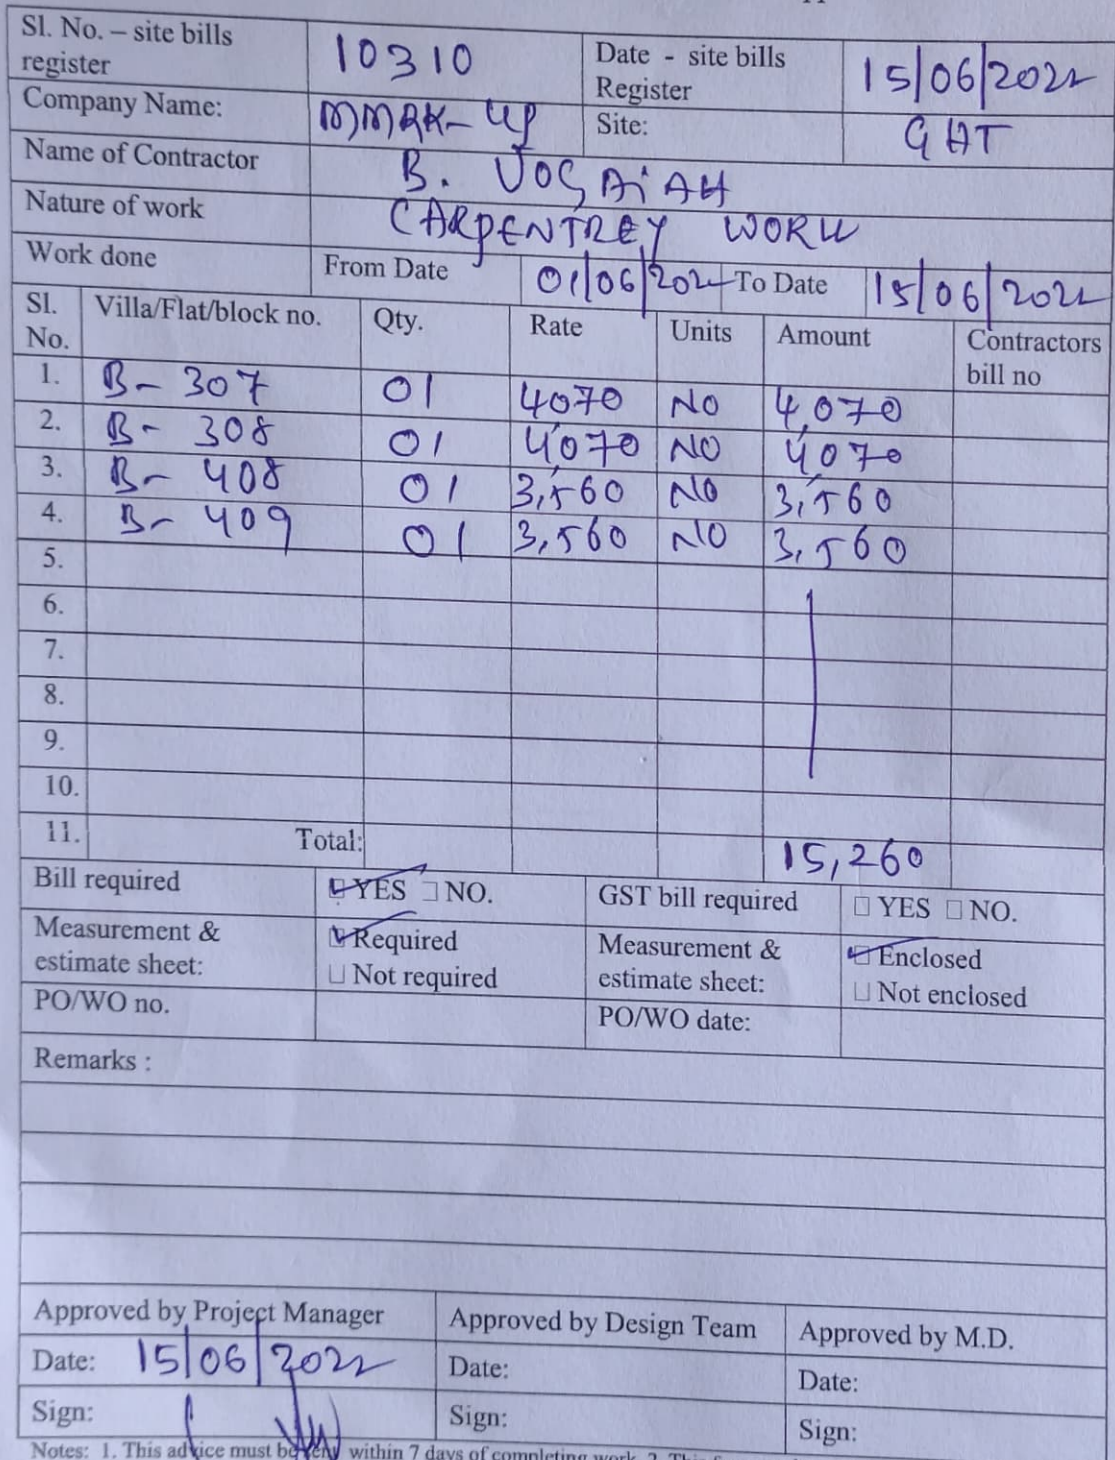 Sl. No. – site bills register 10310 Date - site bills Register 15/06/2022
Company Name: MMRK-UP Site: GHT
Name of Contractor B. JOGAIAH
Nature of work CARPENTREY WORK
Work done From Date 01/06/2022 To Date 15/06/2022
Sl. No. Villa/Flat/block no. Qty. Rate Units Amount Contractors bill no
1. B- 307 01 4070 NO 4,070
2. B- 308 01 4,070 NO 4,070
3. B- 408 01 3,560 NO 3,560
4. B- 409 01 3,560 NO 3,560
5.
6.
7.
8.
9.
10.
11. Total: 15,260
Bill required YES NO. GST bill required YES NO.
Measurement & estimate sheet: Required Not required Measurement & estimate sheet: Enclosed Not enclosed
PO/WO no. PO/WO date:
Remarks :
Approved by Project Manager Approved by Design Team Approved by M.D.
Date: 15/06/2022 Date: Date:
Sign: Sign: Sign:
Notes: 1. This advice must be within 7 days of completing work. 2. This